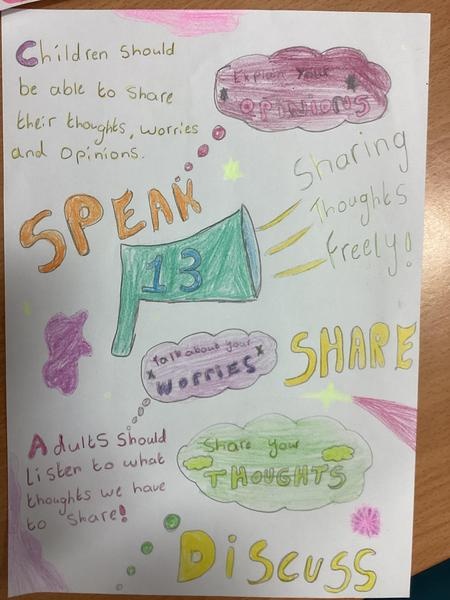 Children should
be able to share
their thoughts, worries
and opinions.
Explain your
OPINIONS
SPEAK
Sharing
Thoughts
Freely!
13
SHARE
Talk about your
WORRIES
Adults should
listen to what
thoughts we have
to share!
Share your
THOUGHTS
DISCUSS